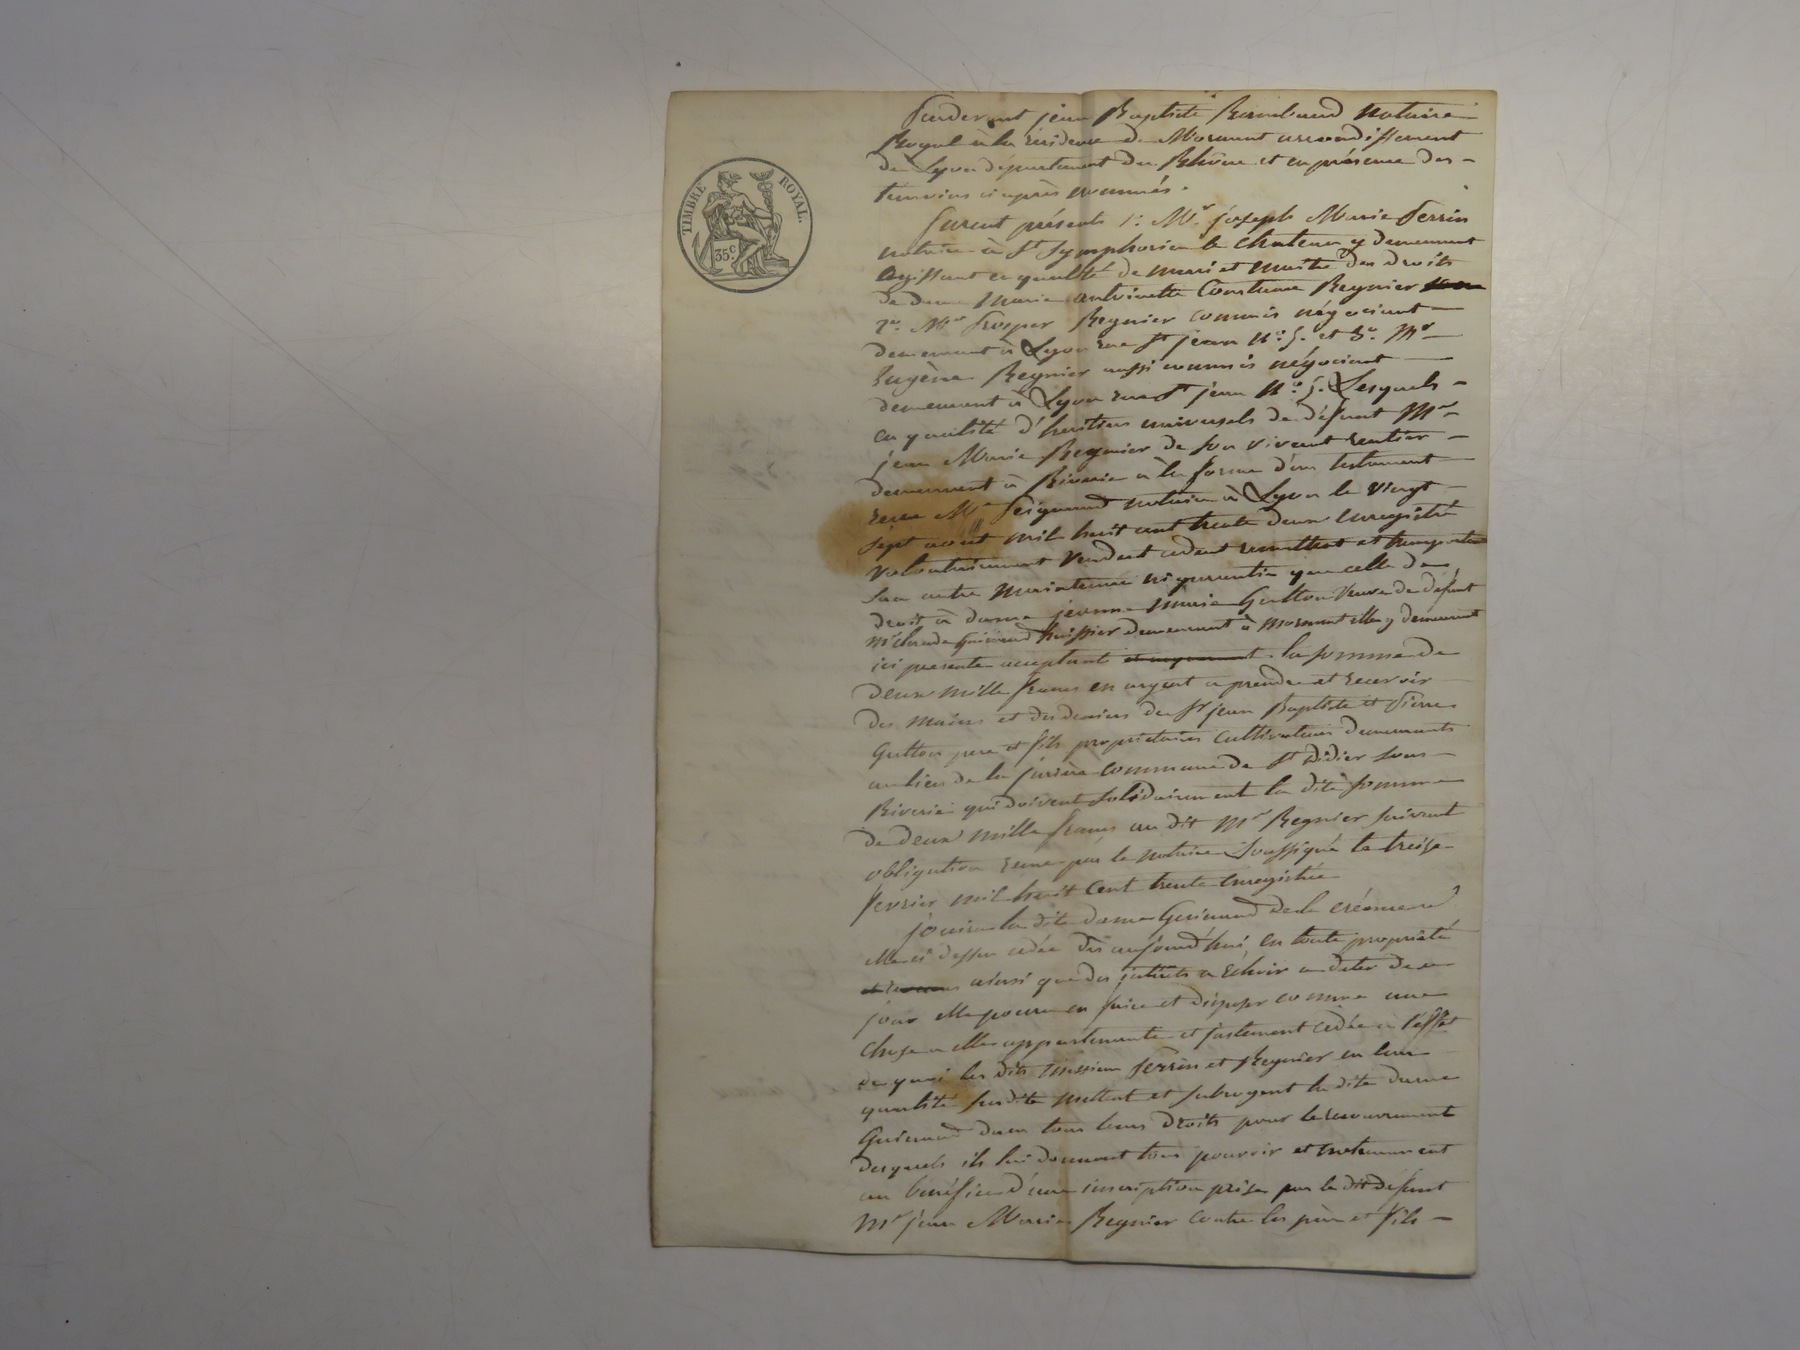 TIMBRE ROYAL.
35.c
Pardevant jean Baptiste Raimbaud notaire
Royal à la résidence de Mornant arrondissement
de Lyon département du Rhône et en présence des
temoins ci après nommés.
Furent présents 1.° Mr. joseph Marie Perrin
notaire à St Symphorien le chateau y demeurant
agissant en qualité de mari et maitre des droits
de dame Marie antoinette Constance Regnier
2.° Mr Prosper Regnier commis négociant
demeurant à Lyon rue St jean N.° 5. et 3.° Mr
Eugène Regnier aussi commis négociant
demeurant à Lyon rue St jean N.° 5. Lesquels
en qualité d'heritiers universels de défunt Mr
jean Marie Regnier de son vivant rentier
demeurant à Riverie à la forme d'un testament
reçu Me notaire à Lyon le vingt
sept août mil huit cent trente deux enregistré
volontairement vendent cedent remettent et transportent
sans autre maintenue ni garantie que celle de
droit à dame jeanne Marie Gutton veuve de défunt
Mr claude Guérimand huissier demeurant à Mornant elle y demeurant
ici presente acceptant la somme de
deux mille francs en argent a prendre et recevoir
des mains et des deniers de Sr jean Baptiste et Pierre
Gutton pere et fils propriétaires cultivateurs demeurants
au lieu de la commune de St Didier sous
Riverie qui doivent solidairement la dite somme
de deux mille francs au dit Mr Regnier suivant
obligation reçue par le notaire soussigné le treize
fevrier mil huit cent trente enregistrée
jouira la dite dame Guerimand de la créance
ci dessus cédée dès aujourd'hui en toute propriété
ainsi que des intérêts a échoir a dater de ce
jour elle pourra en faire et disposer comme une
chose a elle appartenante et justement cédée à l'effet
de quoi les dits Messieurs Perrin et Regnier en leur
qualité susdite mettent et subrogent la dite dame
Guerimand dans tous leurs droits pour le recouvrement
desquels ils lui donnent tous pouvoir et notamment
au bénéfice d'une inscription prise par le dit défunt
Mr jean Marie Regnier contre les père et fils